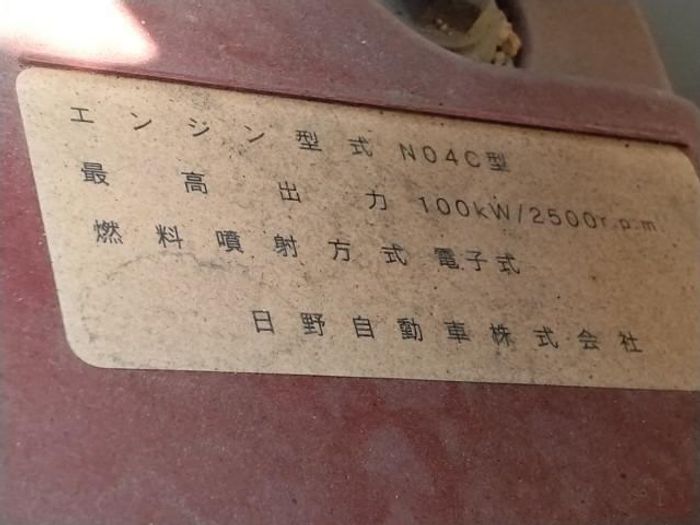 エンジン型式 N04C型
最高出力 100kW/2500r.p.m
燃料噴射方式 電子式
日野自動車株式会社